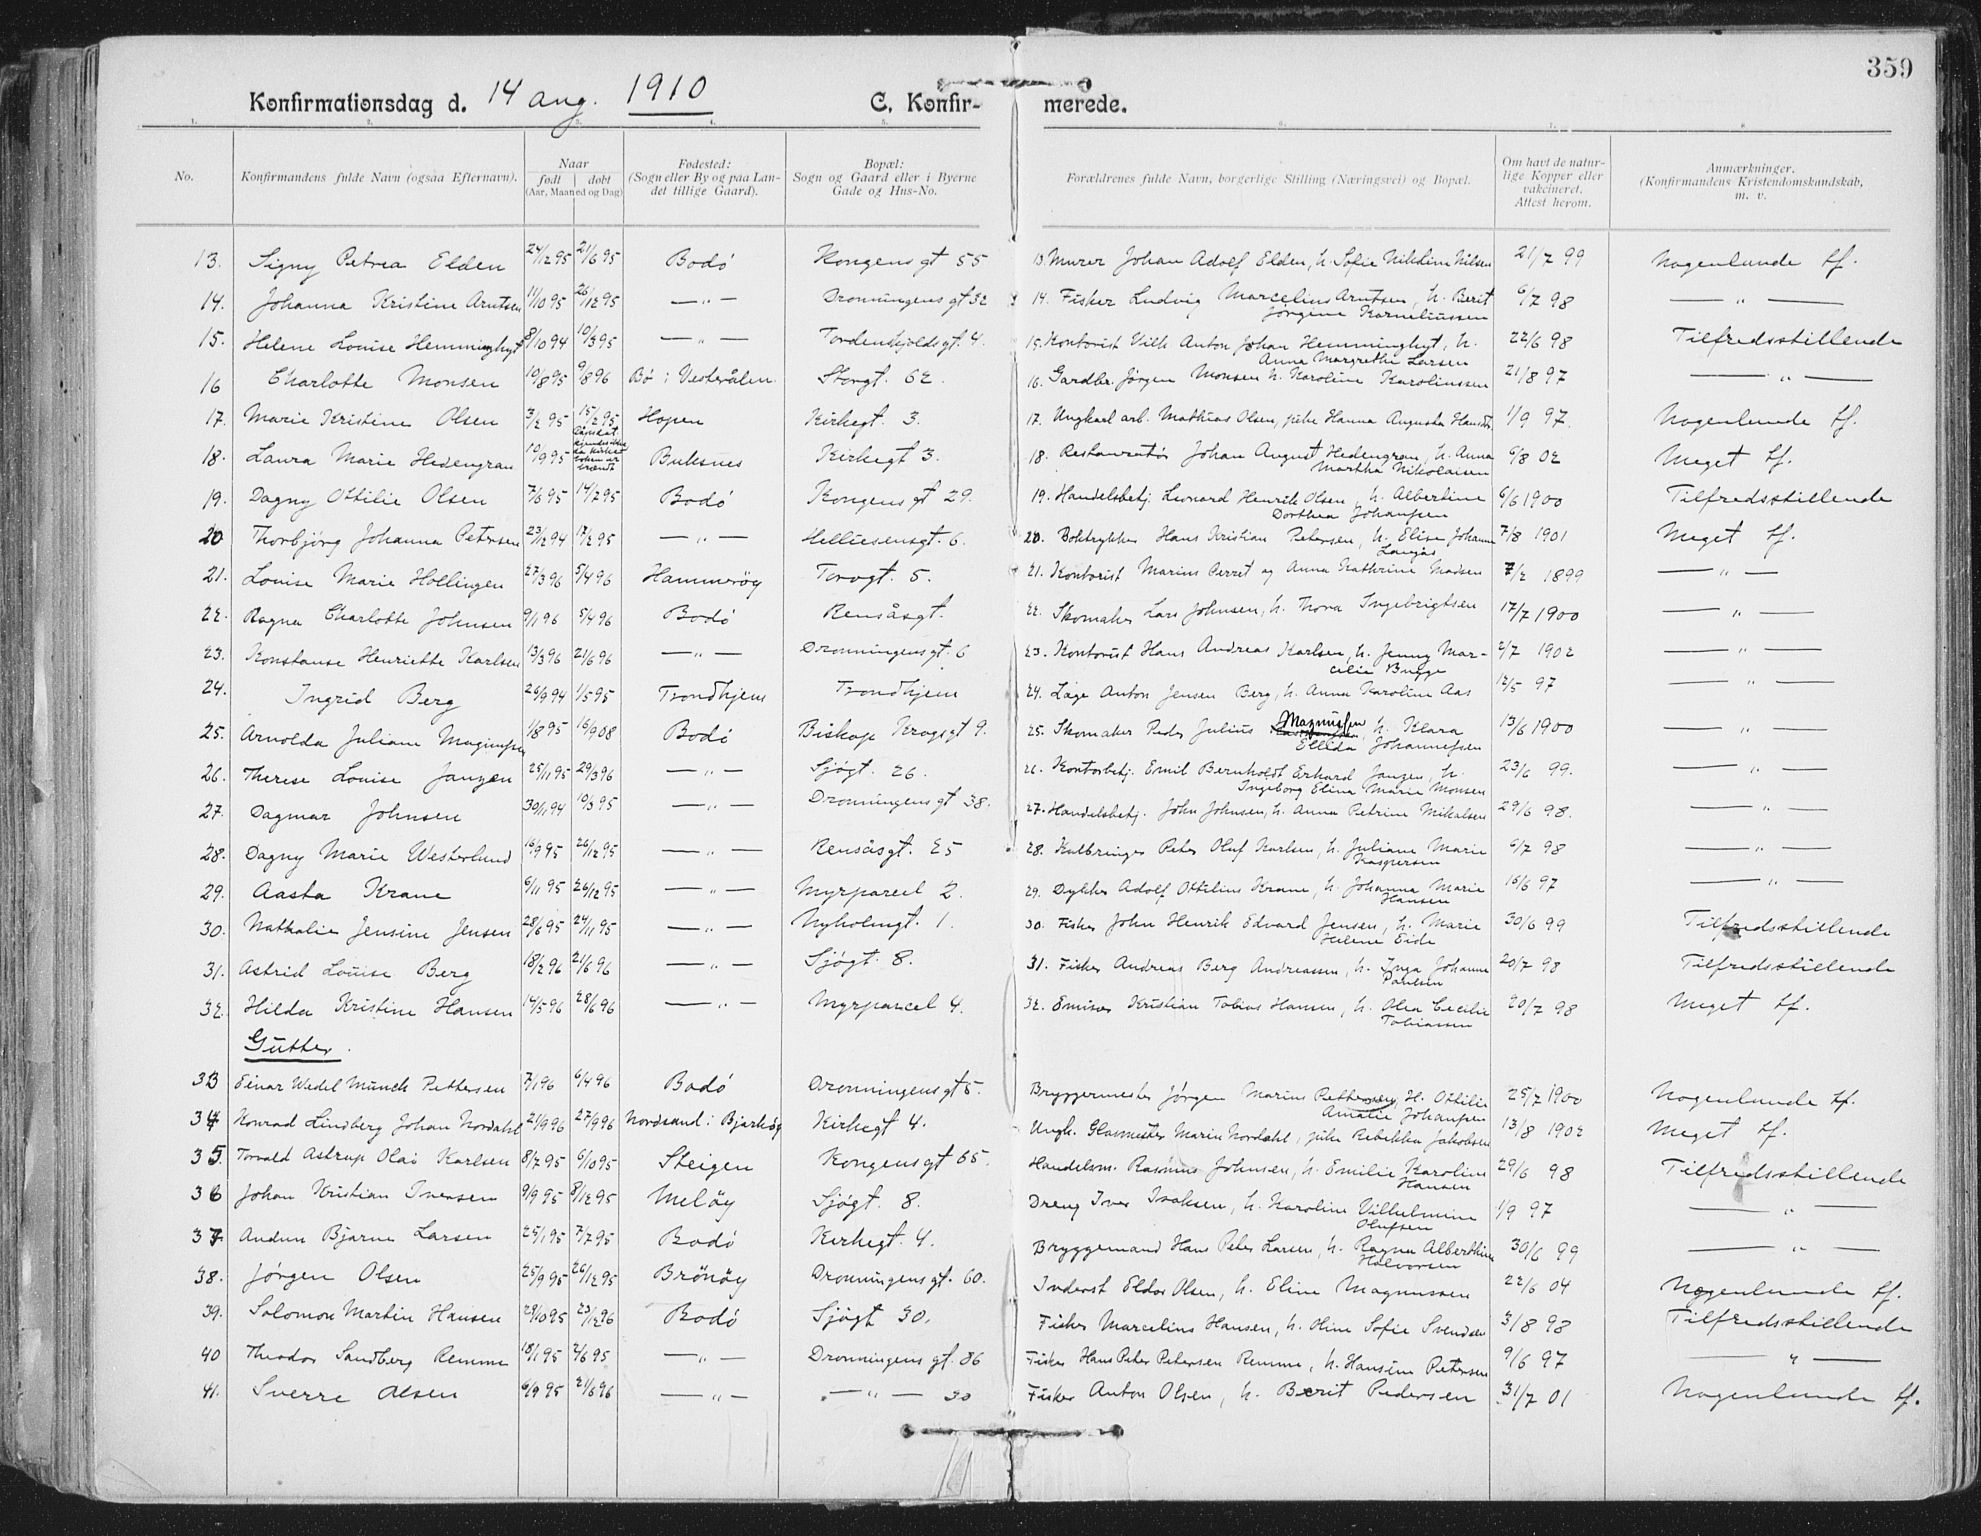 359
Konfirmationsdag d. 14 aug. 1910 C. Konfirmerede.
1. 2. 3. 4. 5. 6. 7. 8
No. Konfirmandens fulde Navn (ogsaa Efternavn). Naar født døbt (Aar, Maaned og Dag) Fødested: (Sogn eller By og paa Landet tillige Gaard). Bopæl: Sogn og Gaard eller i Byerne Gade og Hus-No. Forældrenes fulde Navn, borgerlige Stilling (Næringsvei) og Bopæl. Om havt de naturlige Kopper eller vakcineret. Attest herom. Anmærkninger. (Konfirmandens Kristendomskundskab, m. v.
13. Signy Petrea Elden 24/12 95 21/6 95 Bodö Kongensgt 55 13. Murer Johan Adolf Elden, h. Sofie Nikoline Nilsen 21/7 99 Nogenlunde tf.
14. Johanna Kristine Arntsen 11/10 95 26/12 95 — " — Dronningensgt 32 14. Fisker Ludvig Marcelius Arntsen, h. Berit Jørgine Korneliussen 6/7 98 — " —
15. Helene Louise Hemminghyt 8/10 94 10/3 95 — " — Tordenskjoldsgt. 4. 15. Kontorist Vilh. Anton Johan Hemminghyt, h. Anna Margrethe Larsen 22/6 98 Tilfredsstillende
16 Charlotte Monsen 10/8 95 9/8 96 Bø i Vesterålen Storgt. 62. 16. Gardbr. Jörgen Monsen h. Karoline Karolinssen 21/8 97 — " —
17. Marie Kristine Olsen 3/2 95 15/2 95 Hopen Kirkegt. 3. 17. Ungkarl arb. Mathias Olsen, pike Hanna Augusta 1/9 97. Nogenlunde tf.
18. Laura Marie Hedengran 10/9 95 Buksnes Kirkegt 3. 18. Restauratør Johan August Hedengran, h. Anna Martha Nikolaisen 6/8 02 Meget tf.
19. Dagny Ottilie Olsen 7/6 95 14/2 95 Bodö Kongensgt 29. 19. Handelsbetj. Leonard Henrik Olsen, h. Albertine Dorthea Johanssen 6/6 1900 Tilfredsstillende
20 Thorbjörg Johanna Petersen 23/12 94 17/2 95 — " — Helliesensgt. 6. 20. Boktrykker Hans Kristian Petersen, h. Elise Johanne Langås 7/8 1901 Meget tf.
21. Louise Marie Hollingen 27/3 96 5/4 96 Hammeröy Torvgt. 5. 21. Kontorist Marius Perret og Anna Kathrine Madsen 7/2 1899 — " —
22. Ragna Charlotte Johnsen 9/1 96 5/4 96 Bodö Rensåsgt. 22. Skomaker Lars Johnsen, h. Thora Ingebrigtsen 17/7 1900 — " —
23. Konstanse Henriette Karlsen 13/3 96 21/6 96 — " — Dronningensgt. 6 23. Kontorist Hans Andreas Karlsen, h. Jenny Marcilie Bugge 2/7 1902 — " —
24. Ingrid Berg 26/9 94 1/5 95 Trondhjem Trondhjem 24. Læge Anton Jensen Berg, h. Anna Karoline Aas 12/5 97 — " —
25. Arnolda Juliane Magnussen 1/8 95 16/9 08 Bodö Biskop Krogsgt 9. 25. Skomaker Peder Julius Magnussen, h. Klara Ellida Johannessen 13/6 1900 — " —
26. Therese Louise Janzen 25/11 95 29/3 96 — " — Sjögt. 26. 26. Kontorbetj. Emil Bernholdt Erhard Janzen, h. Ingeborg Elina Marie Monsen 23/6 99. — " —
27. Dagmar Johnsen 30/11 94 10/3 95 — " — Dronningensgt 38. 27. Handelsbetj. John Johnsen, h. Anna Petrine Mikalsen 29/6 98. — " —
28. Dagny Marie Westerlund 16/9 95 26/12 95 — " — Rensåsgt. 25 28. Kulbringer Peter Oluf Karlsen, h. Juliane Marie Kaspersen 6/7 98 — " —
29. Aasta Krane 6/11 95 26/12 95 — " — Myrparcel 2. 29. Dykker Adolf Ottilius Krane, h. Johanna Marie Hansen 15/6 97 — " —
30. Nathalie Jensine Jensen 28/6 95 24/11 95 — " — Nyholmgt. 1. 30. Fisker John Henrik Edvard Jensen, h. Marie Helene Eide 30/6 99 Tilfredsstillende
31. Astrid Louise Berg 18/2 96 21/6 96 — " — Sjögt. 8. 31. Fisker Andreas Berg Andreassen, h. Inga Johanne Paulsen 20/7 98 Tilfredsstillende
32. Hilda Kristine Hansen 14/5 96 28/6 96 — " — Myrparcel 4. 32. Emisær Kristian Tobias Hansen, h. Olea Cecilie Tobiassen 20/7 98 Meget tf.
Gutter.
33 Einar Wedel Munch Pettersen 7/1 96 6/4 96 Bodö Dronningensgt 5. Bryggermester Jörgen Marius Pettersen, H. Ottilie Amalie Johanssen 25/7 1900 Nogenlunde tf.
34 Konrad Lindberg Johan Nordahl 21/9 96 27/9 96 Nordsand i Bjarköy Kirkegt 4. Ungk. Glasmester Marin Nordahl, pike Rebekka Jakobsen 13/8 1902 Meget tf.
35. Torvald Astrup Olai Karlsen 8/7 95 6/10 95 Steigen Kongensgt 65. Handelsm. Rasmus Johnsen, h. Emilie Karoline Hansen 29/6 98 Tilfredsstillende
36 Johan Kristian Iversen 9/9 95 8/12 95 Melöy Sjögt. 8. Dreng Iver Isaksen, h. Karoline Vilhelmine Olufsen 1/9 97 — " —
37. Audun Bjarne Larsen 25/1 95 7/7 95 Bodö Kirkegt. 4. Bryggemand Hans Peter Larsen, h. Ragna Albertine Halvorsen 30/6 99 — " —
38. Jörgen Olsen 25/9 95 26/12 95 Brönöy Dronningensgt. 60. Inderst Eldor Olsen, h. Eline Magnussen 22/6 04 Nogenlunde tf.
39. Solomon Martin Hansen 29/10 95 23/12 96 Bodö Sjögt 30. Fisker Marcelius Hansen, h. Oline Sofie Svendsen 3/8 98 Tilfredsstillende
40 Theodor Sandberg Remme 18/1 95 2/6 95 — " — Dronningensgt. 86 Fisker Hans Peter Petersen Remme, h. Hansine Petersen 9/6 97 — " —
41. Sverre Olsen 6/9 95 21/6 96 — " — — " — 30 Fisker Anton Olsen, h. Berit Pedersen 31/7 01 Nogenlunde tf.